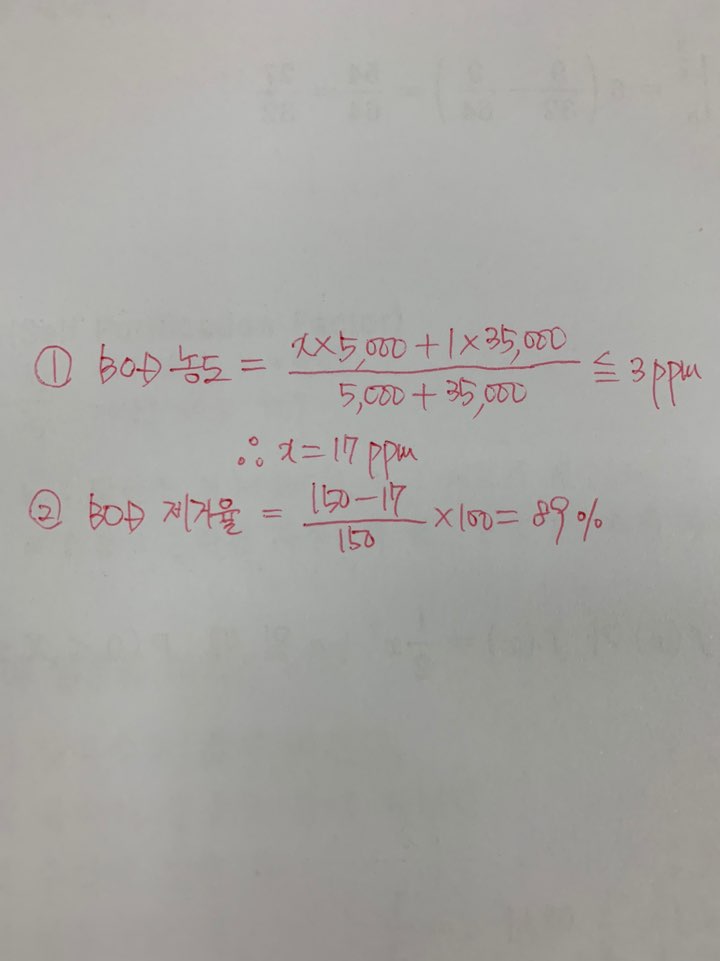 ① BOD 농도 = \frac{x×5,000+1×35,000}{5,000+35,000} ≦ 3 ppm
∴ x=17 ppm
② BOD 제거율 = \frac{150-17}{150} ×100= 89%